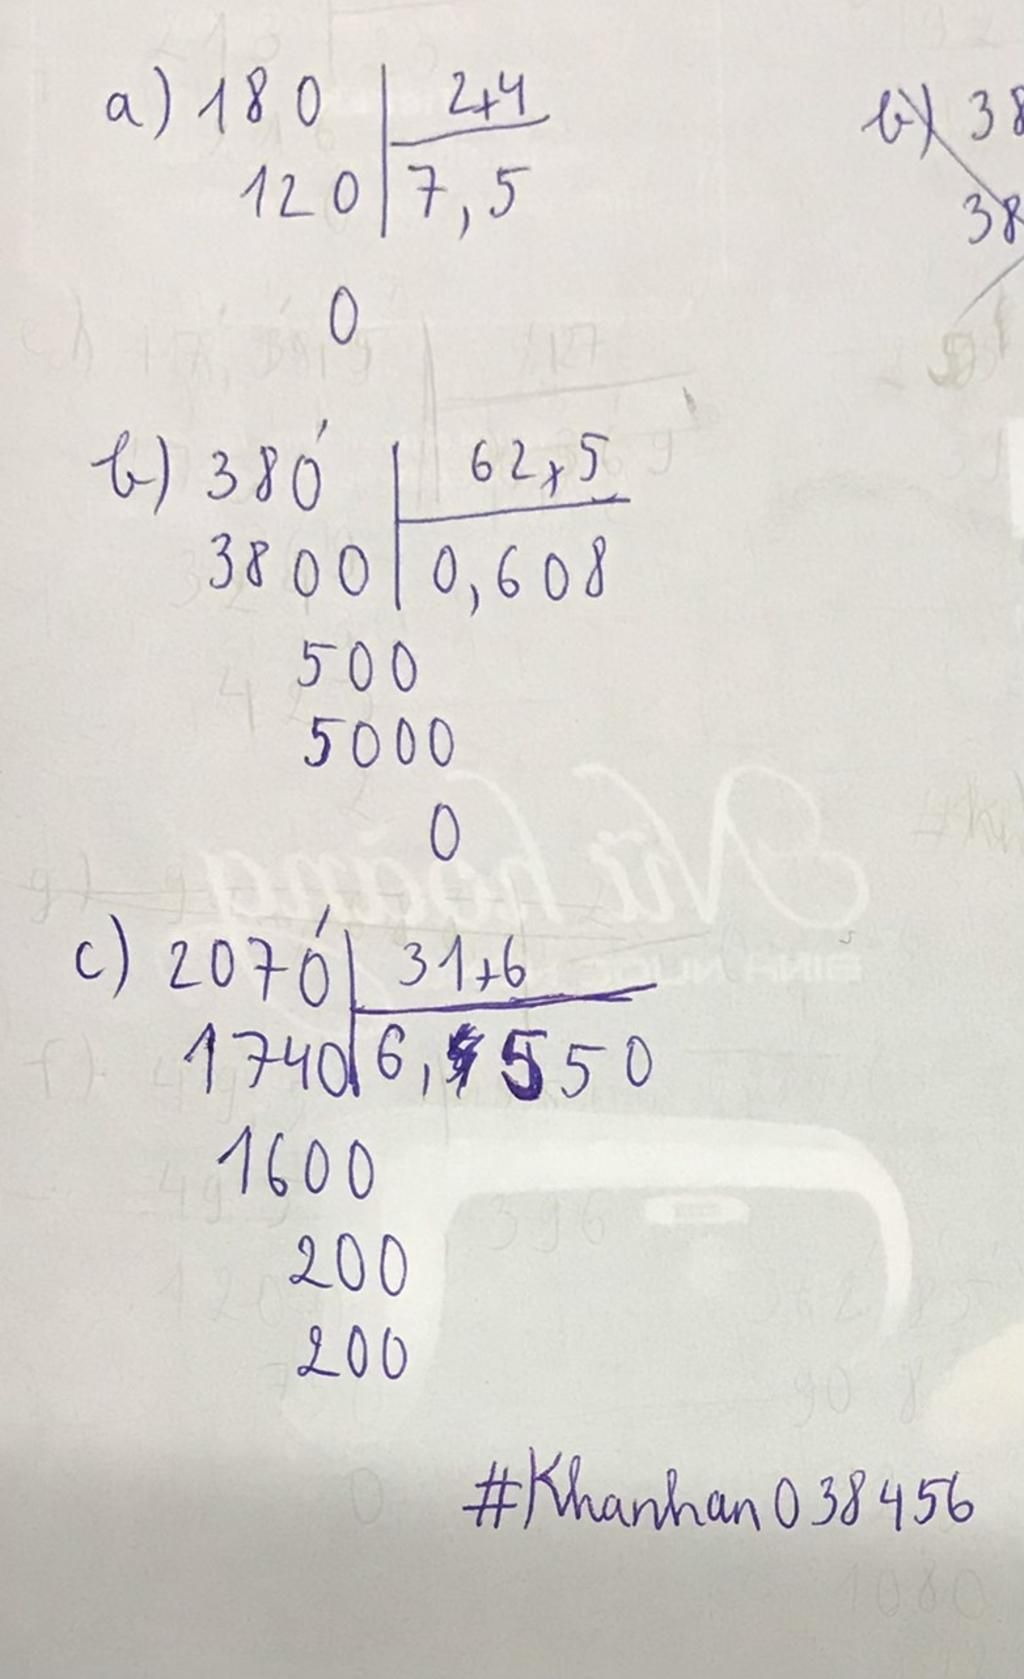 a) 180 | 2,4
120 | 7,5
0
b) 38
38
b) 380 | 62,5
3800 | 0,608
500
5000
0
c) 2070 | 31,6
1740 | 6,550
1600
200
200
#Khanhan038456
Nữ hoàng